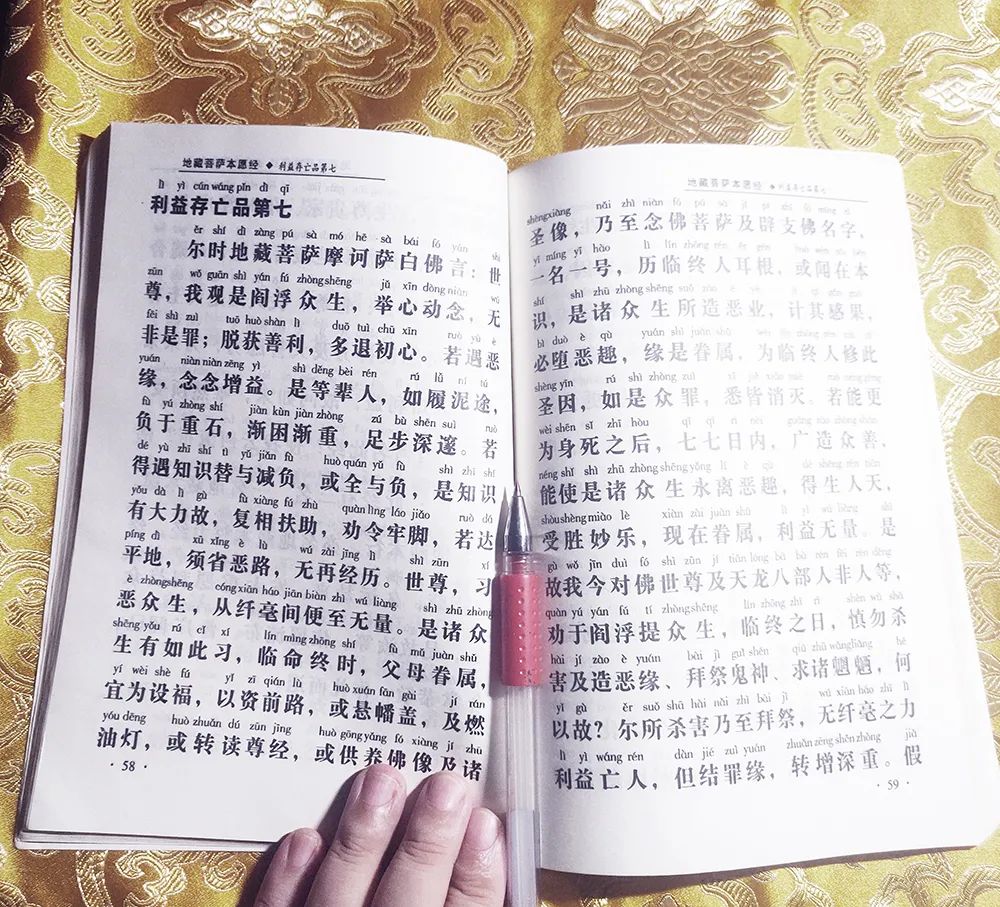 地藏菩萨本愿经 ◆ 利益存亡品第七
lì yì cún wáng pǐn dì qī
利益存亡品第七
ěr shí dì zàng pú sà mó hē sà bái fó yán
尔时地藏菩萨摩诃萨白佛言：世
zūn wǒ guān shì yán fú zhòng shēng jǔ xīn dòng niàn wú
尊，我观是阎浮众生，举心动念，无
fēi shì zuì tuō huò shàn lì duō tuì chū xīn ruò yù è
非是罪；脱获善利，多退初心。若遇恶
yuán niàn niàn zēng yì shì děng bèi rén rú lǚ ní tú
缘，念念增益。是等辈人，如履泥途，
fù yú zhòng shí jiàn kùn jiàn zhòng zú bù shēn suì ruò
负于重石，渐困渐重，足步深邃。若
dé yù zhī shi tì yǔ jiǎn fù huò quán yǔ fù shì zhī shi
得遇知识替与减负，或全与负，是知识
yǒu dà lì gù fù xiāng fú zhù quàn lìng láo jiǎo ruò dá
有大力故，复相扶助，劝令牢脚，若达
píng dì xū xǐng è lù wú zài jīng lì shì zūn xí
平地，须省恶路，无再经历。世尊，习
è zhòng shēng cóng xiān háo jiān biàn zhì wú liàng shì zhū zhòng
恶众生，从纤毫间便至无量。是诸众
shēng yǒu rú cǐ xí lín mìng zhōng shí fù mǔ juàn shǔ
生有如此习，临命终时，父母眷属，
yí wèi shè fú yǐ zī qián lù huò xuán fān gài jí rán
宜为设福，以资前路，或悬幡盖，及燃
yóu dēng huò zhuǎn dú zūn jīng huò gòng yǎng fó xiàng jí zhū
油灯，或转读尊经，或供养佛像及诸
· 58 ·
地藏菩萨本愿经 ◆ 利益存亡品第七
shèng xiàng nǎi zhì niàn fó pú sà jí
圣像，乃至念佛菩萨及辟支佛名字，
yì míng yí hào lì lín zhōng rén ěr gēn
一名一号，历临终人耳根，或闻在本
shí shì zhū zhòng shēng suǒ zào
识，是诸众生所造恶业，计其感果，
bì duò è qù yuán shì juàn shǔ
必堕恶趣，缘是眷属，为临终人修此
shèng yīn rú shì zhòng zuì
圣因，如是众罪，悉皆消灭。若能更
wèi shēn sǐ zhī hòu qī qī rì nèi
为身死之后，七七日内，广造众善
néng shǐ shì zhū zhòng shēng yǒng lí è qù
能使是诸众生永离恶趣，得生人天，
shòu shèng miào lè xiàn zài juàn shǔ
受胜妙乐，现在眷属，利益无量。是
gù wǒ jīn duì fó shì zūn jí tiān lóng bā bù rén fēi rén děng
故我今对佛世尊及天龙八部人非人等，
quàn yú yán fú tí zhòng shēng lín zhōng zhī rì shèn wù shā
劝于阎浮提众生，临终之日，慎勿杀
hài jí zào è yuán bài jì guǐ shén qiú zhū wǎng liǎng hé
害及造恶缘、拜祭鬼神、求诸魍魉，何
yǐ gù ěr suǒ shā hài nǎi zhì bài jì wú xiān háo zhī lì
以故？尔所杀害乃至拜祭，无纤毫之力
lì yì wáng rén dàn jié zuì yuán zhuǎn zēng shēn zhòng jiǎ
利益亡人，但结罪缘，转增深重。假
· 59 ·